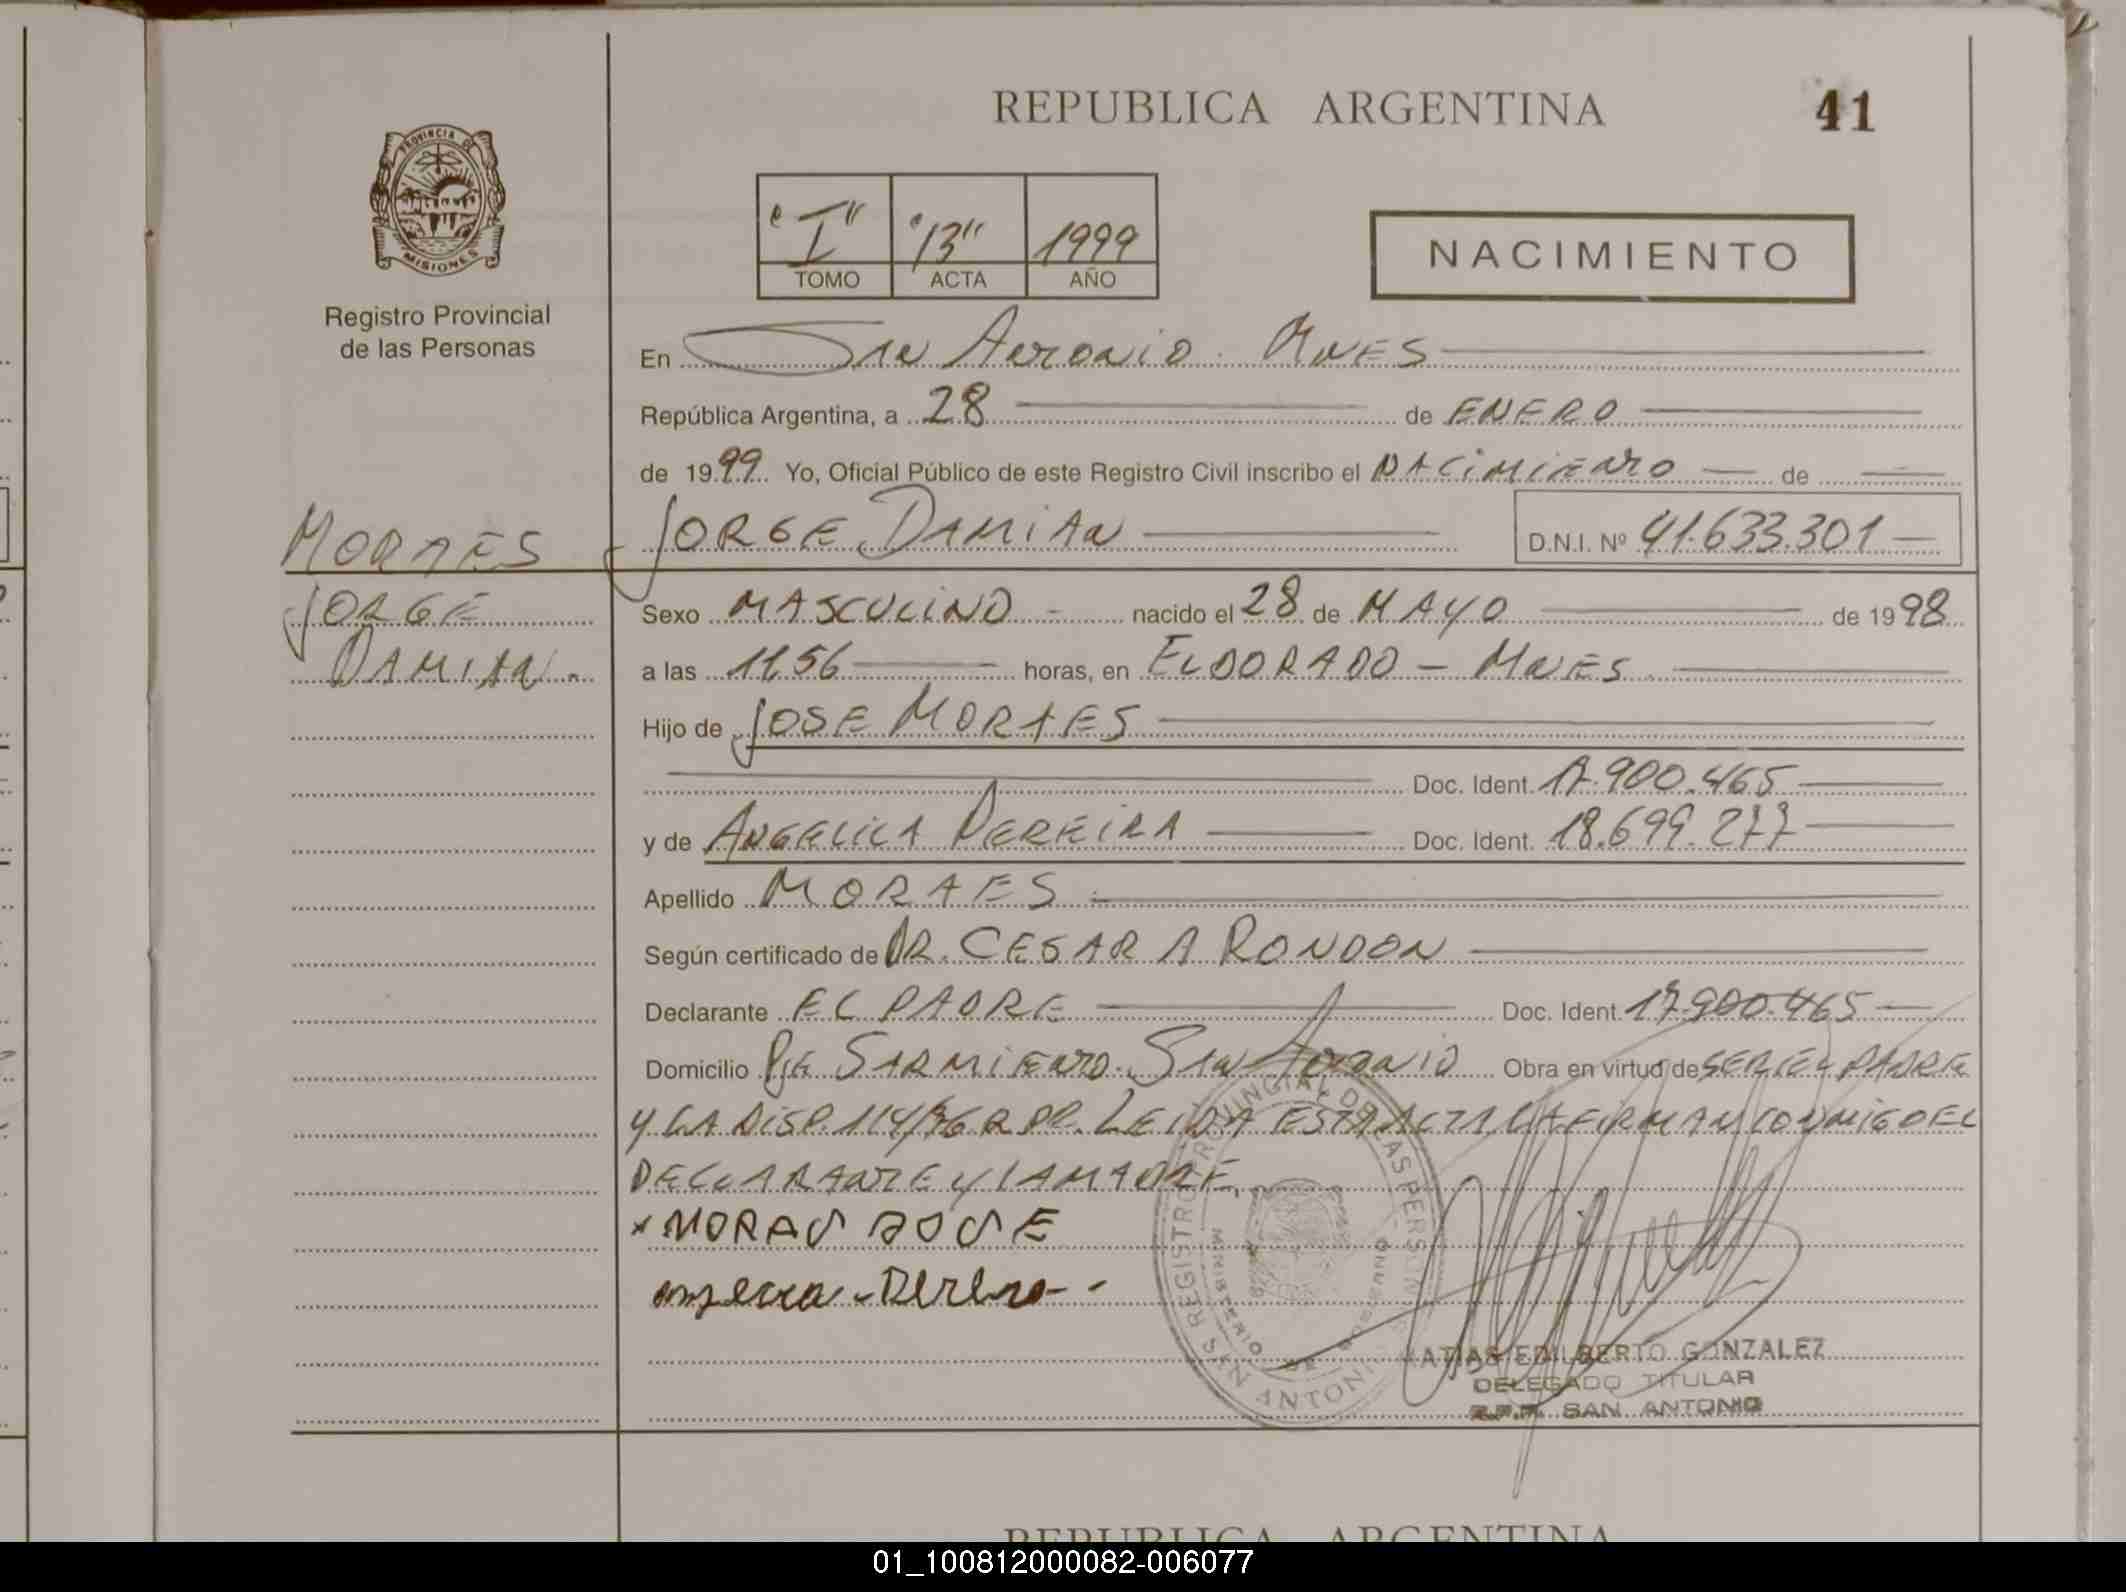 REPUBLICA ARGENTINA
41
PROVINCIA DE
MISIONES
Registro Provincial
de las Personas
"I" "13" 1999
TOMO ACTA AÑO
NACIMIENTO
En San Antonio Mnes
República Argentina, a 28 de ENERO
de 1999 Yo, Oficial Público de este Registro Civil inscribo el NACIMIENTO de
JORGE DAMIAN D.N.I. Nº 41.633.301
MORAES
JORGE
DAMIAN.
Sexo MASCULINO nacido el 28 de MAYO de 1998
a las 1156 horas, en ELDORADO - MNES
Hijo de JOSE MORAES
Doc. Ident. 17.900.465
y de ANGELICA PEREIRA Doc. Ident. 18.699.277
Apellido MORAES
Según certificado de DR. CESAR A RONDON
Declarante EL PADRE Doc. Ident. 17.900.465
Domicilio Pje SARMIENTO. SAN ANTONIO Obra en virtud de SER EL PADRE
Y LA DISP. 114/96 R.P.P. LEIDA ESTA ACTA LA FIRMAN CONMIGO EL
DECLARANTE Y LA MADRE.
REGISTRO PROVINCIAL DE LAS PERSONAS
MINISTERIO DE GOBIERNO
SAN ANTONIO
MATIAS EDILBERTO GONZALEZ
DELEGADO TITULAR
R.P.P. SAN ANTONIO
REPUBLICA ARGENTINA
01_100812000082-006077